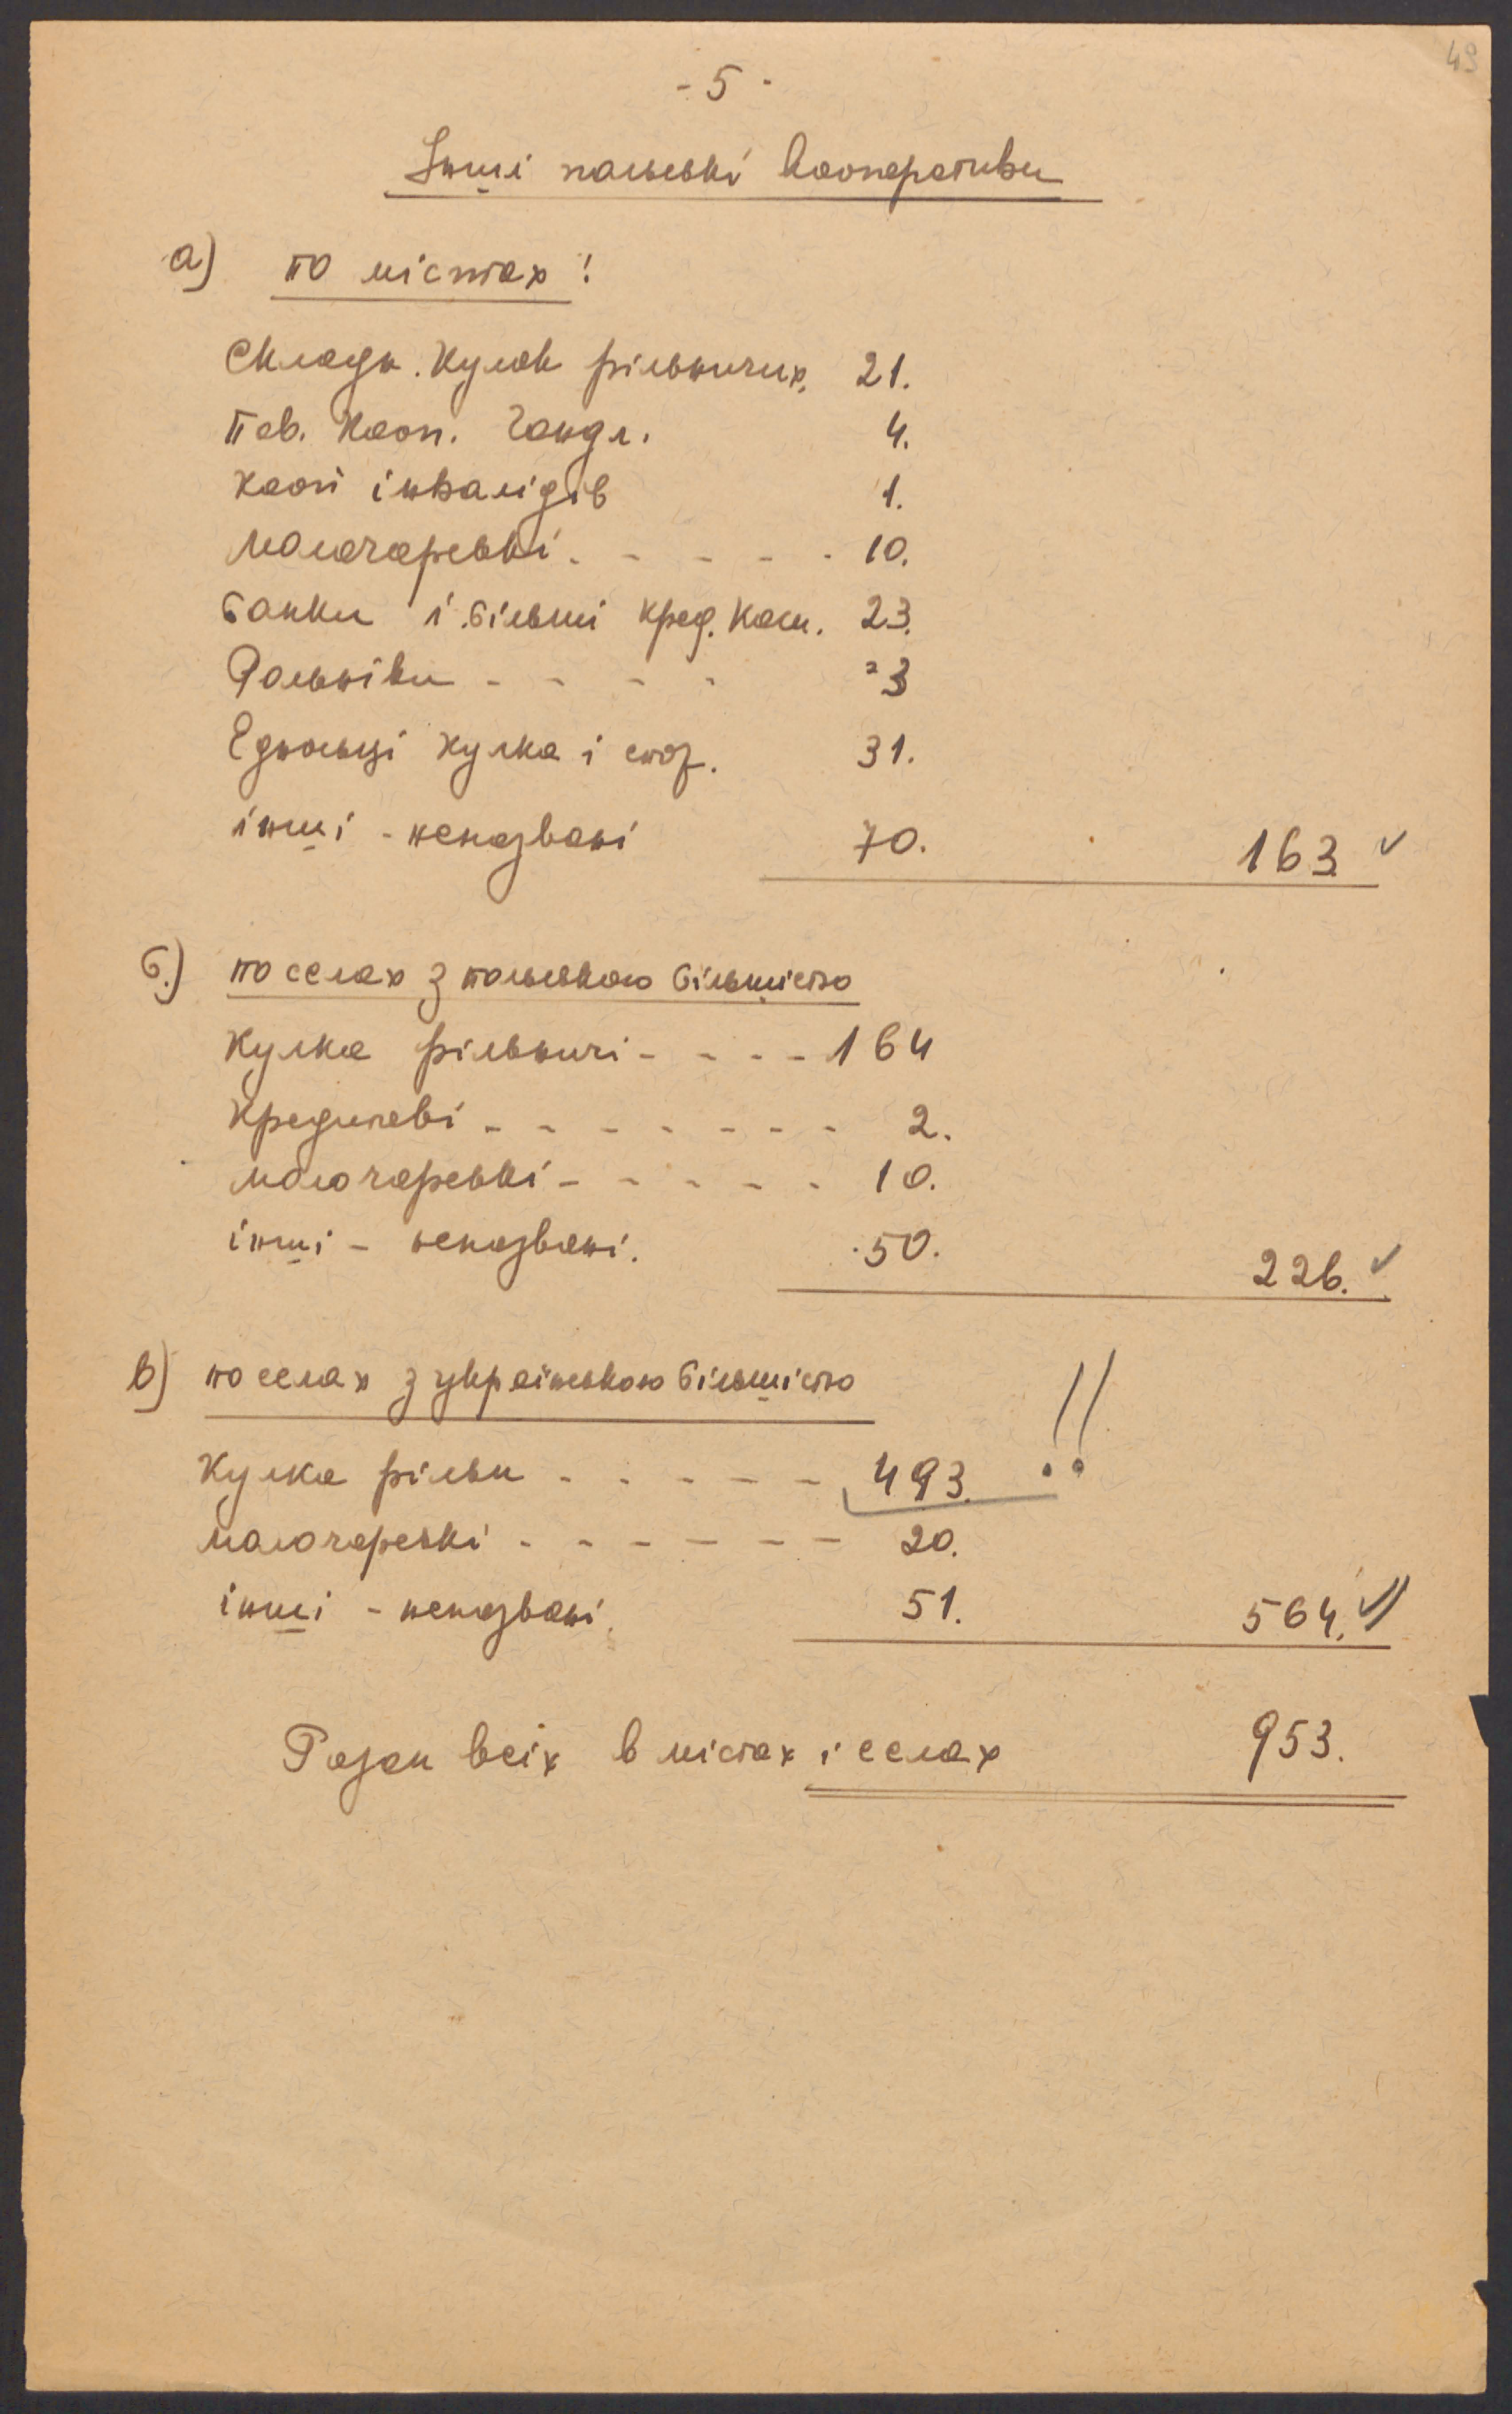 49
- 5 -
Інші польські кооперативи
а) по містах:
Складн. Кулок рільничих. 21.
Пов. Кооп. Гандл. 4.
Кооп інвалідів 1.
Молочарські - - - - - 10.
Банки і більші кред. Каси. 23.
Рольніки - - - - 3
Едности кулка і спож. 31.
інші - неназвані 70. 163
б.) по селах з польською більшістю
Кулка рільничі - - - - 164
Кредитові - - - - - - - 2.
молочарські - - - - - 10.
інші - неназвані. 50. 226.
в) по селах з українською більшістю
Кулка рільн - - - - - 493. !!
молочарські - - - - - - 20.
інші - неназвані. 51. 564.
Разом всіх в містах і селах 953.